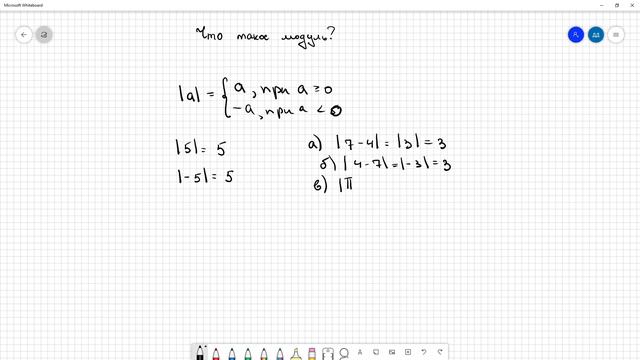 Microsoft Whiteboard
Что такое модуль?
|a| = { a, при a ≥ 0
-a, при a < 0
|5| = 5
|-5| = 5
а) |7-4| = |3| = 3
б) |4-7| = |-3| = 3
в) |π